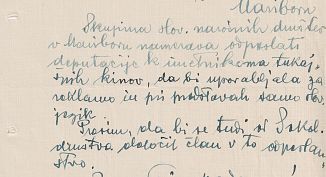 Mariboru
Skupina slov. naročnih društev
v Mariboru namerava odposlati
deputacijo k imetnikoma tukaj-
šnjih kinov, da bi uporabljala za
reklamo in pri predstavah samo slov.
jezik
Prosim, da bi se tudi od Sokol.
društva določil član v to odposlan
stvo.